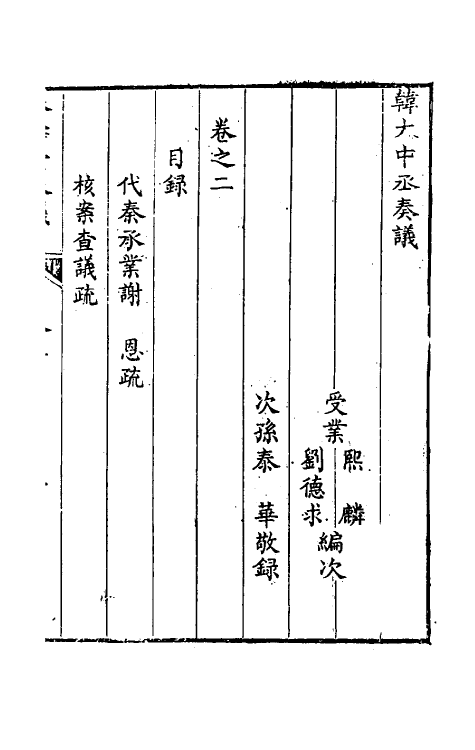 韓大中丞奏議
受業 熙麟 劉德求 編次
次孫泰華敬録
卷之二
目録
代秦承業謝 恩疏
核案查議疏